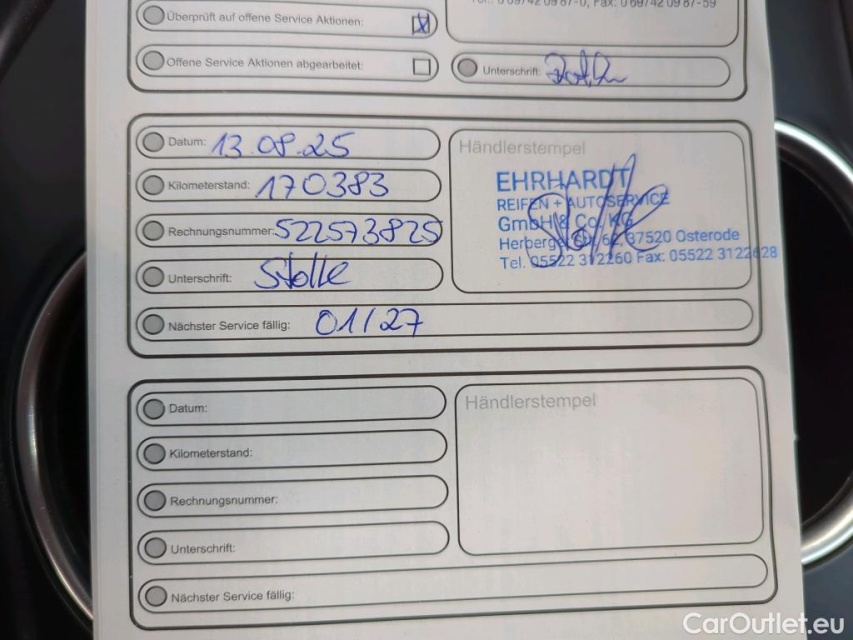 Überprüft auf offene Service Aktionen:
Offene Service Aktionen abgearbeitet:
Unterschrift:
Datum: 13.08.25
Kilometerstand: 170383
Rechnungsnummer: 522573825
Unterschrift: Stolle
Nächster Service fällig: 01/27
Händlerstempel
EHRHARDT
REIFEN + AUTOSERVICE
GmbH & Co. KG
37520 Osterode
Tel. 05522 312260 Fax: 05522 3122628
Datum:
Kilometerstand:
Rechnungsnummer:
Unterschrift:
Nächster Service fällig:
Händlerstempel
CarOutlet.eu